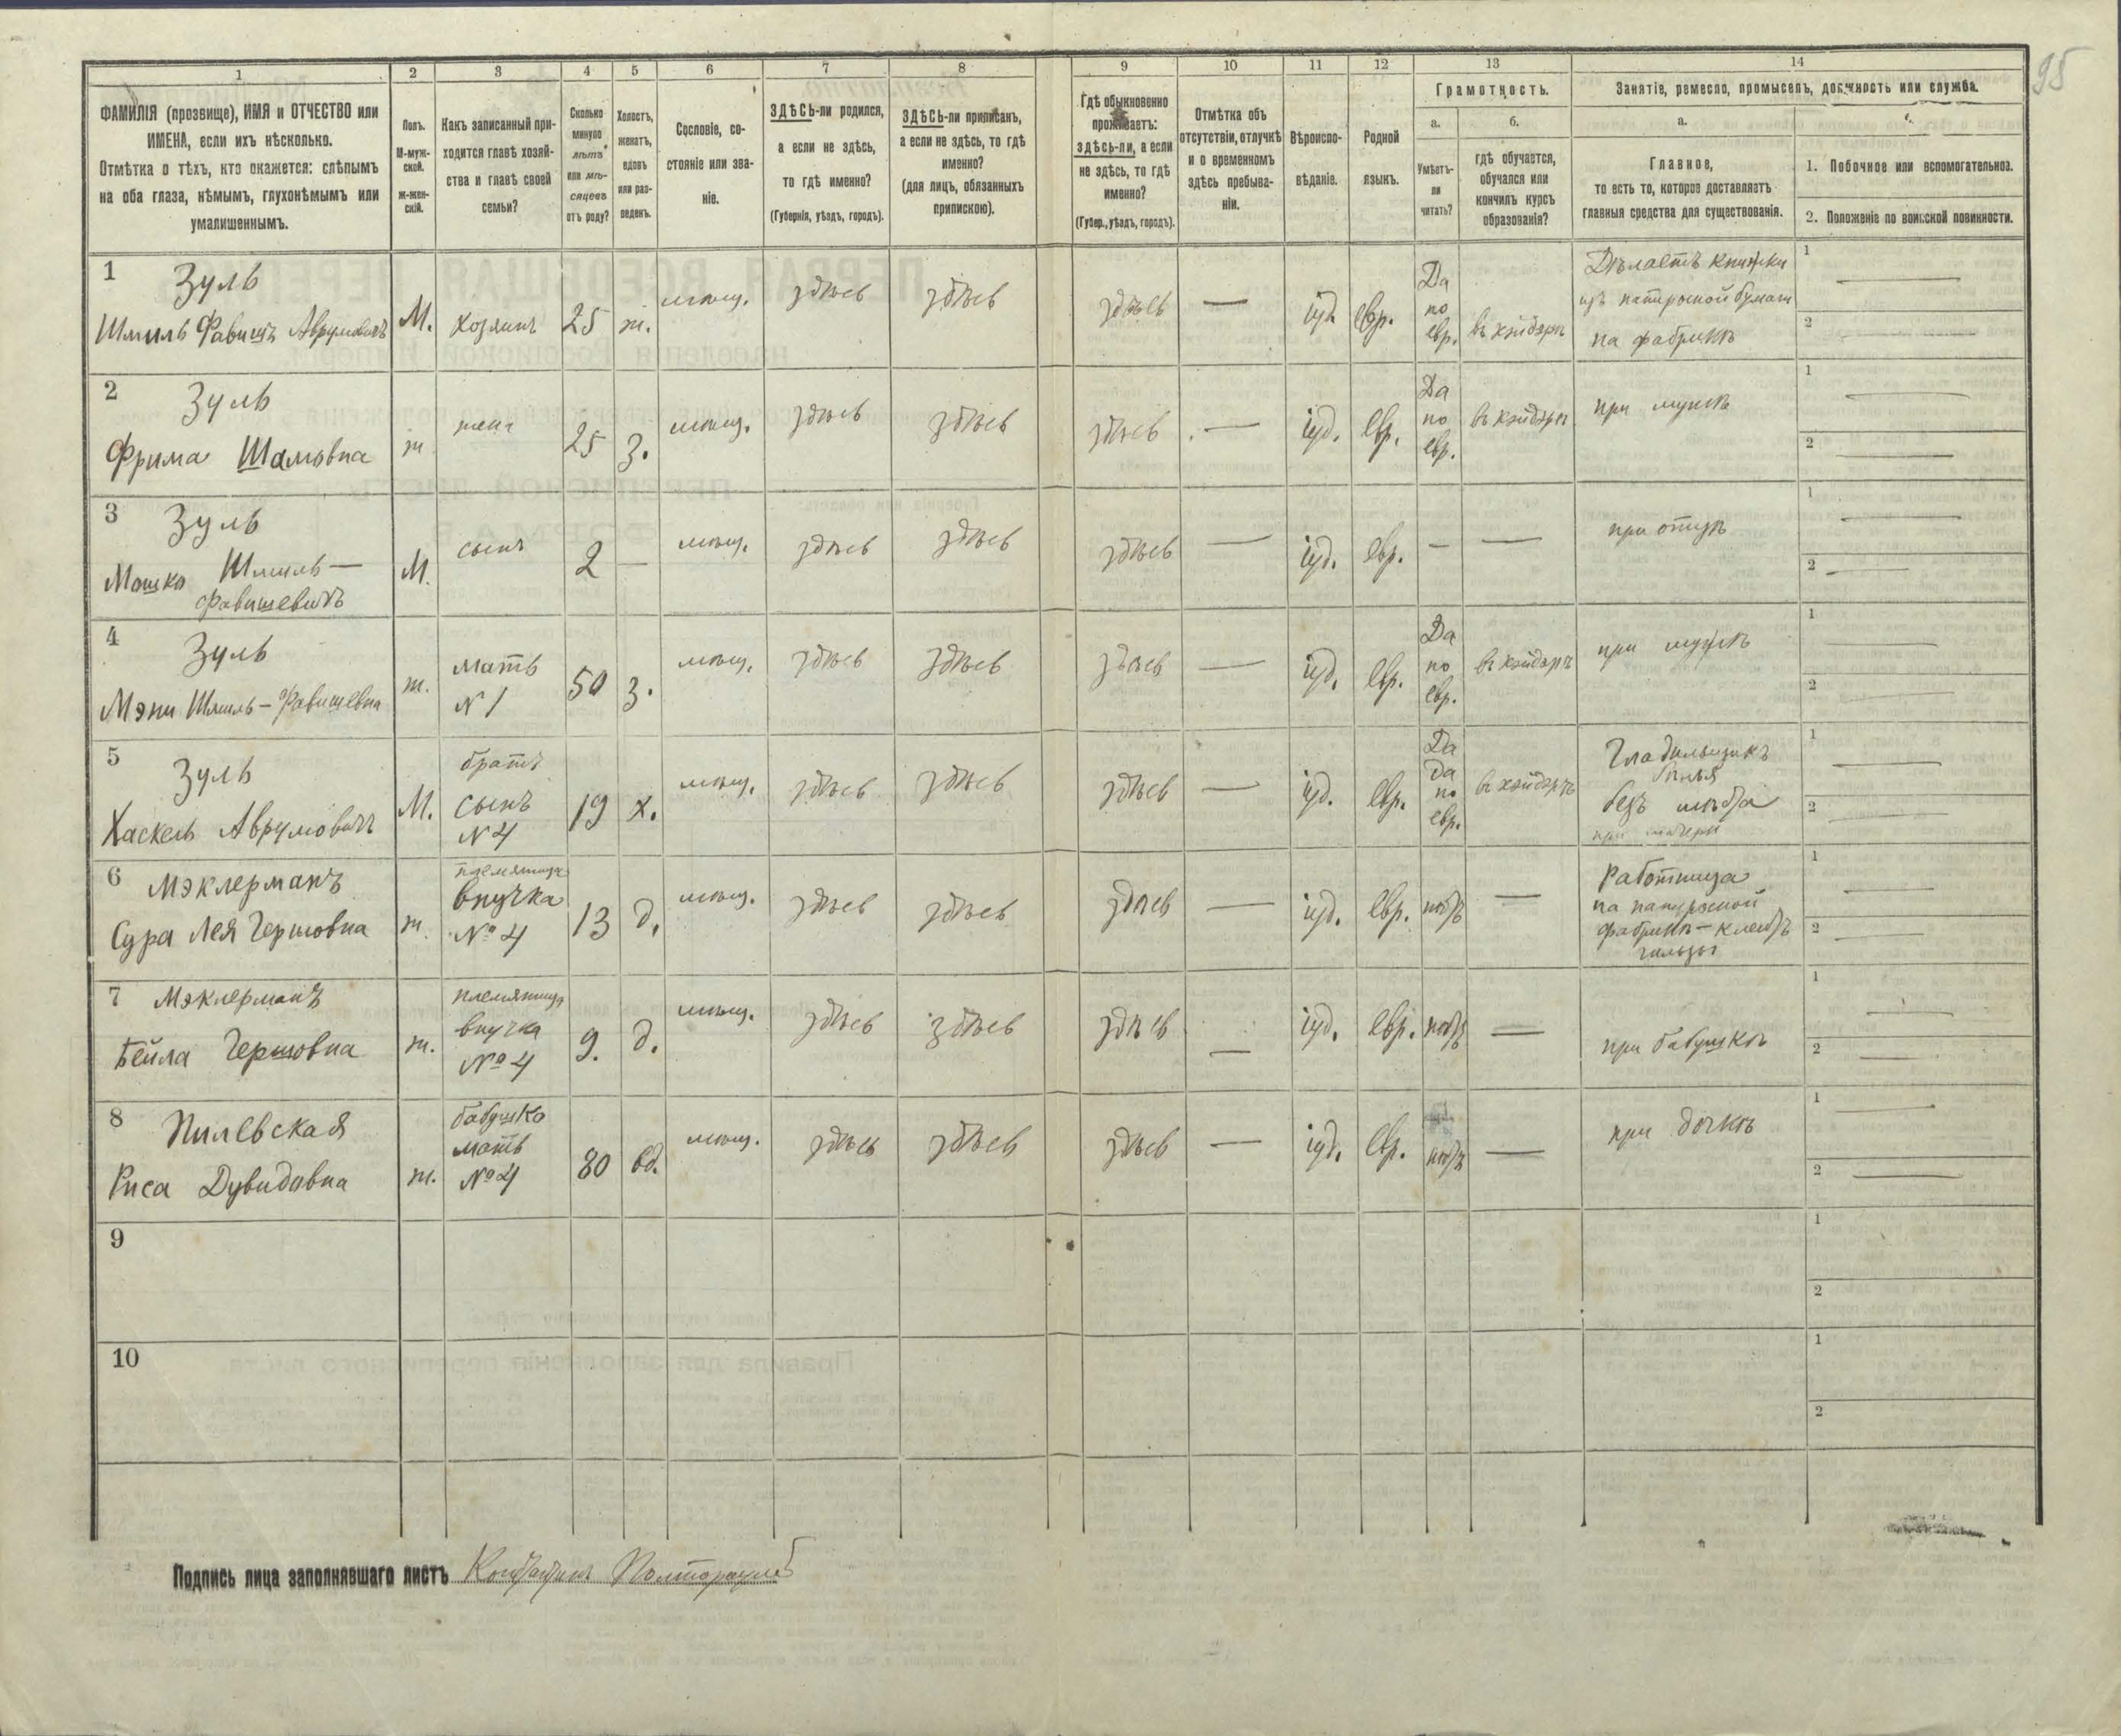 95
1 2 3 4 5 6 7 8 9 10 11 12 13 14
ФАМИЛІЯ (прозвище), ИМЯ и ОТЧЕСТВО или
ИМЕНА, если ихъ нѣсколько.
Отмѣтка о тѣхъ, кто окажется: слѣпымъ
на оба глаза, нѣмымъ, глухонѣмымъ или
умалишеннымъ.
Полъ.
М-муж-
ской.
ж-жен-
скій.
Какъ записанный при-
ходится главѣ хозяй-
ства и главѣ своей
семьи?
Сколько
минуло
лѣтъ
или мѣ-
сяцевъ
отъ роду?
Холостъ,
женатъ,
вдовъ
или раз-
веденъ.
Сословіе, со-
стояніе или зва-
ніе.
ЗДѢСЬ-ли родился,
а если не здѣсь,
то гдѣ именно?
(Губернія, уѣздъ, городъ).
ЗДѢСЬ-ли приписанъ,
а если не здѣсь, то гдѣ
именно?
(для лицъ, обязанныхъ
припискою).
Гдѣ обыкновенно
проживаетъ:
здѣсь-ли, а если
не здѣсь, то гдѣ
именно?
(Губер., уѣздъ, городъ).
Отмѣтка объ
отсутствіи, отлучкѣ
и о временномъ
здѣсь пребыва-
ніи.
Вѣроиспо-
вѣданіе.
Родной
языкъ.
Грамотность.
а.
Умѣетъ-
ли
читать?
б.
гдѣ обучается,
обучался или
кончилъ курсъ
образованія?
Занятіе, ремесло, промыселъ, должность или служба.
а.
Главное,
то есть то, которое доставляетъ
главныя средства для существованія.
1. Побочное или вспомогательное.
2. Положеніе по воинской повинности.
1 Зуль
Шмиль Фавишъ Аврумовичъ
М. хозяинъ 25 ж. мѣщ. здѣсь здѣсь здѣсь — іуд. евр.
Да
по
евр.
въ хэйдерѣ
Дѣлаетъ книжки
изъ папиросной бумаги
на фабрикѣ
1 —
2 —
2 Зуль
Фрима Шамовна
ж жена 25 з. мѣщ. здѣсь здѣсь здѣсь — іуд. евр.
Да
по
евр.
въ хэйдерѣ
при мужѣ
1 —
2 —
3 Зуль
Мошко Шмиль—
Фавишевичъ
М. сынъ 2 — мѣщ. здѣсь здѣсь здѣсь — іуд. евр. — —
при отцѣ
1 —
2 —
4 Зуль
Мэни Шмиль-Фавишевна
ж.
мать
№ 1
50 з. мѣщ. здѣсь здѣсь здѣсь — іуд. евр.
Да
по
евр.
въ хэйдерѣ
при мужѣ
1 —
2 —
5 Зуль
Хаскель Аврумовичъ
М.
братъ
сынъ
№ 4
19 х. мѣщ. здѣсь здѣсь здѣсь — іуд. евр.
Да
да
по
евр.
въ хэйдерѣ
Гладильщикъ
бѣлья
безъ мѣста
при матери
1 —
2 —
6 Мэклерманъ
Сура Лея Гершовна
ж.
племянница
внучка
№ 4
13 д. мѣщ. здѣсь здѣсь здѣсь — іуд. евр. нѣтъ —
Работница
на папиросной
фабрикѣ — клеитъ
гильзы
1 —
2 —
7 Мэклерманъ
Бейла Гершовна
ж.
племянница
внучка
№ 4
9. д. мѣщ. здѣсь здѣсь здѣсь — іуд. евр. нѣтъ —
при бабушкѣ
1 —
2 —
8 Пилевская
Риса Дувидовна
ж.
бабушка
мать
№ 4
80 вд. мѣщ. здѣсь здѣсь здѣсь — іуд. евр. нѣтъ —
при дочкѣ
1 —
2 —
9
1
2
10
1
2
Подпись лица заполнявшаго листъ